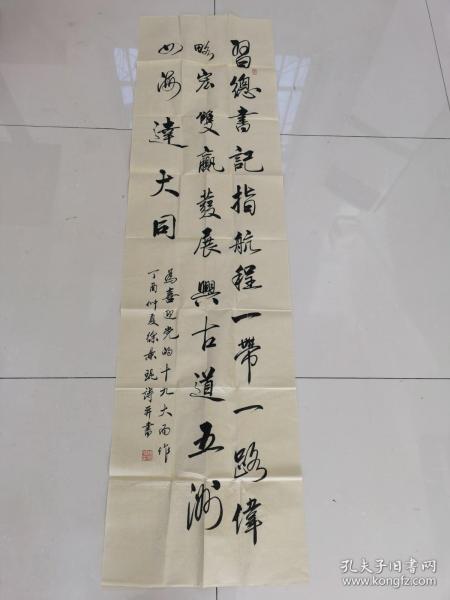 習總書記指航程一帶一路偉
略宏雙贏發展興古道五洲
四海達大同
為喜迎党的十九大而作
丁酉仲夏徐泉詩并書
孔夫子旧书网
www.kongfz.com